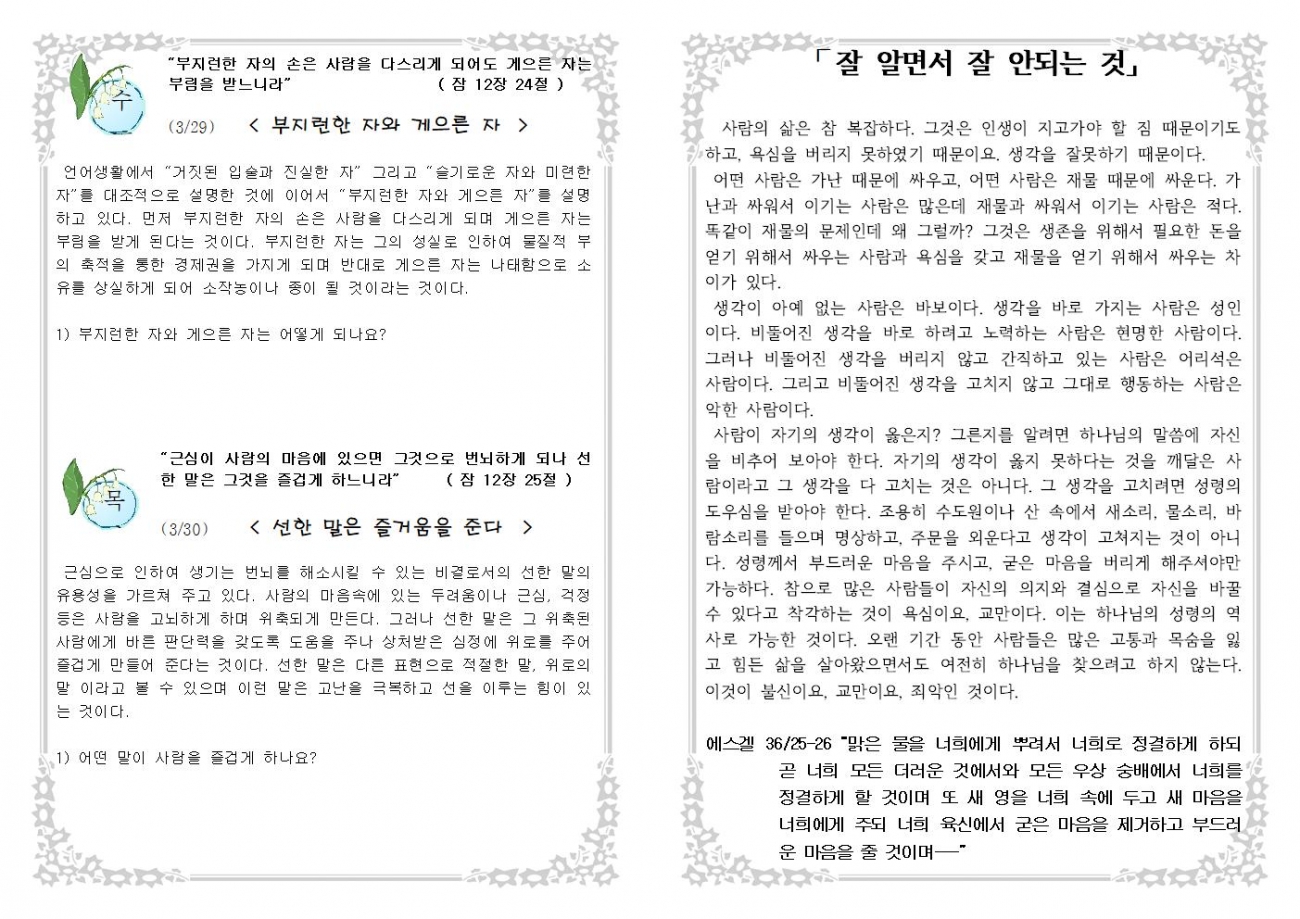 수
“부지런한 자의 손은 사람을 다스리게 되어도 게으른 자는
부림을 받느니라” ( 잠 12장 24절 )
(3/29) < 부지런한 자와 게으른 자 >
언어생활에서 “거짓된 입술과 진실한 자” 그리고 “슬기로운 자와 미련한
자”를 대조적으로 설명한 것에 이어서 “부지런한 자와 게으른 자”를 설명
하고 있다. 먼저 부지런한 자의 손은 사람을 다스리게 되며 게으른 자는
부림을 받게 된다는 것이다. 부지런한 자는 그의 성실로 인하여 물질적 부
의 축적을 통한 경제권을 가지게 되며 반대로 게으른 자는 나태함으로 소
유를 상실하게 되어 소작농이나 종이 될 것이라는 것이다.
1) 부지런한 자와 게으른 자는 어떻게 되나요?
목
“근심이 사람의 마음에 있으면 그것으로 번뇌하게 되나 선
한 말은 그것을 즐겁게 하느니라” ( 잠 12장 25절 )
(3/30) < 선한 말은 즐거움을 준다 >
근심으로 인하여 생기는 번뇌를 해소시킬 수 있는 비결로서의 선한 말의
유용성을 가르쳐 주고 있다. 사람의 마음속에 있는 두려움이나 근심, 걱정
등은 사람을 고뇌하게 하며 위축되게 만든다. 그러나 선한 말은 그 위축된
사람에게 바른 판단력을 갖도록 도움을 주나 상처받은 심정에 위로를 주어
즐겁게 만들어 준다는 것이다. 선한 말은 다른 표현으로 적절한 말, 위로의
말 이라고 볼 수 있으며 이런 말은 고난을 극복하고 선을 이루는 힘이 있
는 것이다.
1) 어떤 말이 사람을 즐겁게 하나요?
「잘 알면서 잘 안되는 것」
사람의 삶은 참 복잡하다. 그것은 인생이 지고가야 할 짐 때문이기도
하고, 욕심을 버리지 못하였기 때문이요. 생각을 잘못하기 때문이다.
어떤 사람은 가난 때문에 싸우고, 어떤 사람은 재물 때문에 싸운다. 가
난과 싸워서 이기는 사람은 많은데 재물과 싸워서 이기는 사람은 적다.
똑같이 재물의 문제인데 왜 그럴까? 그것은 생존을 위해서 필요한 돈을
얻기 위해서 싸우는 사람과 욕심을 갖고 재물을 얻기 위해서 싸우는 차
이가 있다.
생각이 아예 없는 사람은 바보이다. 생각을 바로 가지는 사람은 성인
이다. 비뚤어진 생각을 바로 하려고 노력하는 사람은 현명한 사람이다.
그러나 비뚤어진 생각을 버리지 않고 간직하고 있는 사람은 어리석은
사람이다. 그리고 비뚤어진 생각을 고치지 않고 그대로 행동하는 사람은
악한 사람이다.
사람이 자기의 생각이 옳은지? 그른지를 알려면 하나님의 말씀에 자신
을 비추어 보아야 한다. 자기의 생각이 옳지 못하다는 것을 깨달은 사
람이라고 그 생각을 다 고치는 것은 아니다. 그 생각을 고치려면 성령의
도우심을 받아야 한다. 조용히 수도원이나 산 속에서 새소리, 물소리, 바
람소리를 들으며 명상하고, 주문을 외운다고 생각이 고쳐지는 것이 아니
다. 성령께서 부드러운 마음을 주시고, 굳은 마음을 버리게 해주셔야만
가능하다. 참으로 많은 사람들이 자신의 의지와 결심으로 자신을 바꿀
수 있다고 착각하는 것이 욕심이요, 교만이다. 이는 하나님의 성령의 역
사로 가능한 것이다. 오랜 기간 동안 사람들은 많은 고통과 목숨을 잃
고 힘든 삶을 살아왔으면서도 여전히 하나님을 찾으려고 하지 않는다.
이것이 불신이요, 교만이요, 죄악인 것이다.
에스겔 36/25-26 “맑은 물을 너희에게 뿌려서 너희로 정결하게 하되
곧 너희 모든 더러운 것에서와 모든 우상 숭배에서 너희를
정결하게 할 것이며 또 새 영을 너희 속에 두고 새 마음을
너희에게 주되 너희 육신에서 굳은 마음을 제거하고 부드러
운 마음을 줄 것이며──”